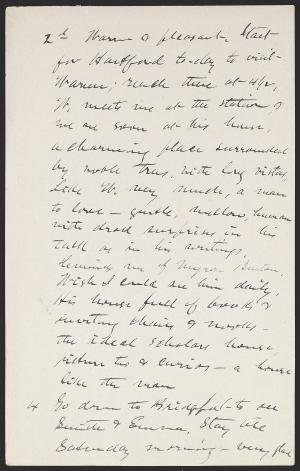 2d Warm & pleasant. Start
for Hartford to-day to visit
Warner; reach there at 4 1/2,
W. meets me at the station, &
we are soon at his house,
a charming place surrounded
by noble trees, with long vistas,
Like W. very much, a man
to love — gentle, mellow, human
with droll surprises in his
talk as in his writings,
Reminds me of Myron Benton.
Wish I could see him daily,
His house full of books &
inviting chairs & nooks —
the ideal scholars house,
pictures too & curios — a house
like the man
4 Go down to Bridgeport to see
Smith & Emma. Stay till
Saturday morning — very glad